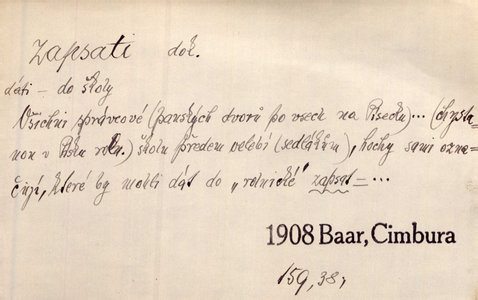 Zapsati dok.
dáti – do školy
Všichni správcové (panských dvorů po vsech na Písecku)... (chysta-
nou v Písku roln.) školu předem velebí (sedlákům), hochy sami ozna-
čují, které by mohli dát do „rolnické" zapsat – ...
1908 Baar, Cimbura
159, 38,